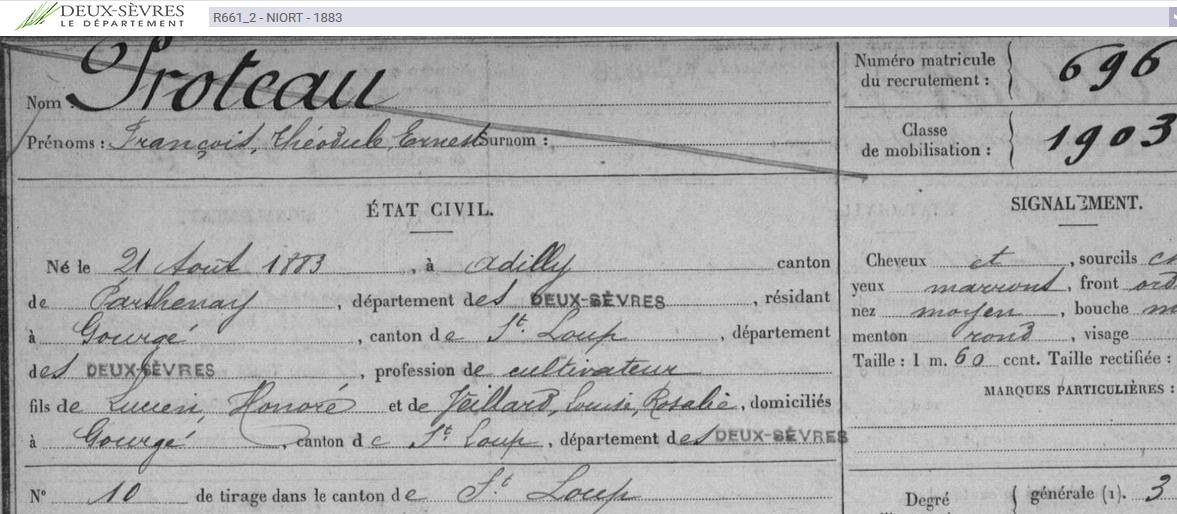 DEUX-SÈVRES
LE DÉPARTEMENT
R661_2 - NIORT - 1883
Nom : Proteau
Prénoms : François, Théodule, Ernest Surnom :
Numéro matricule du recrutement : 696
Classe de mobilisation : 1903
ÉTAT CIVIL.
Né le 21 Août 1883, à Adilly canton
de Parthenay, département des DEUX-SÈVRES, résidant
à Gourgé, canton de St. Loup, département
des DEUX-SÈVRES, profession de cultivateur
fils de Lucien, Honoré et de Jeillard, Louise, Rosalie, domiciliés
à Gourgé, canton de St. Loup, département des DEUX-SÈVRES
N° 10 de tirage dans le canton de St. Loup
SIGNALEMENT.
Cheveux et, sourcils
yeux marrons, front ord
nez moyen, bouche m
menton rond, visage
Taille : 1 m. 60 cent. Taille rectifiée :
MARQUES PARTICULIÈRES :
Degré
générale (1). 3